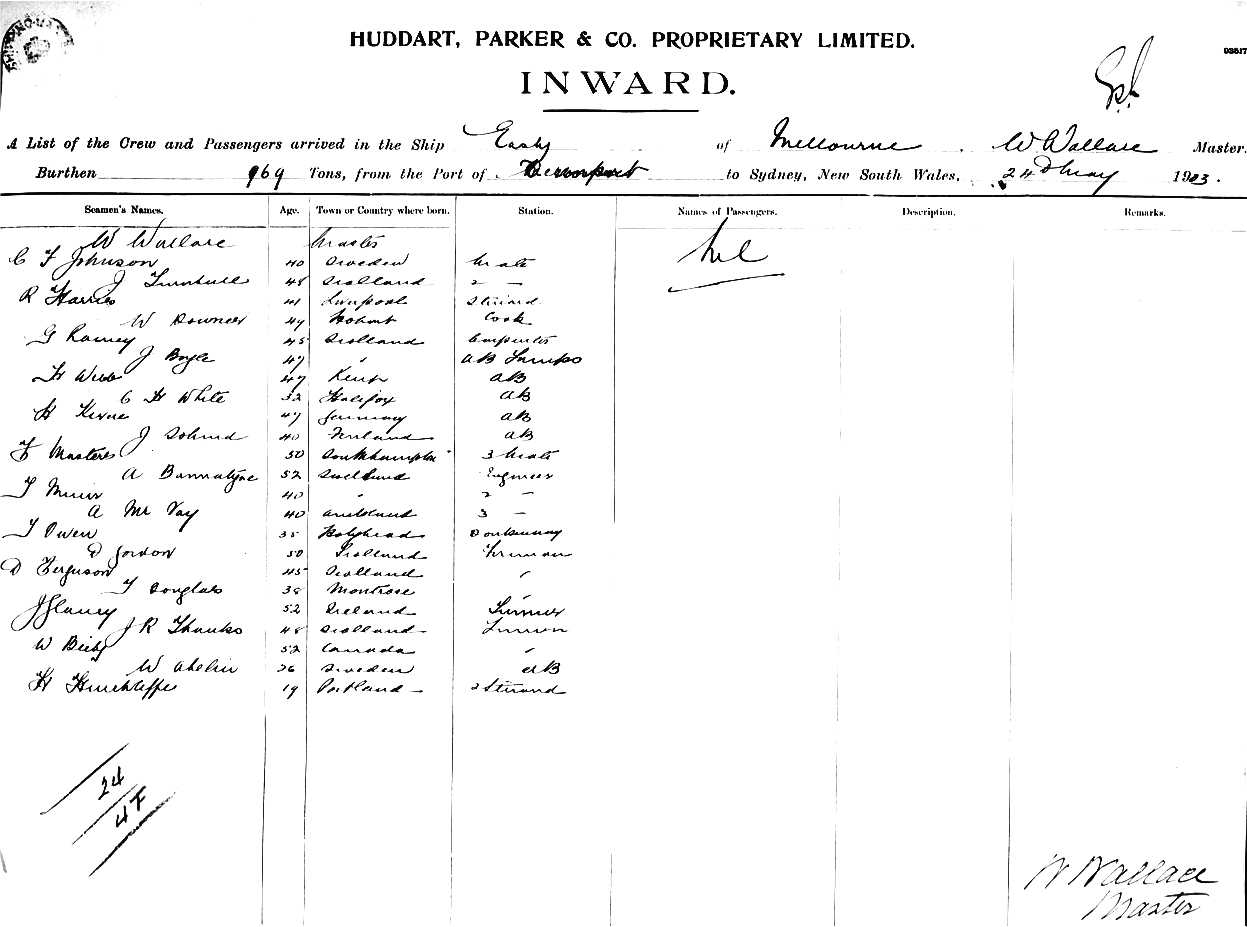 SHIPPING MASTE
HUDDART, PARKER & CO. PROPRIETARY LIMITED.
INWARD.
A List of the Crew and Passengers arrived in the Ship Easby of Melbourne W Wallace Master
Burthen 969 Tons, from the Port of Devonport to Sydney, New South Wales, 24th May 1903.
Seamen's Names. Age. Town or Country where born. Station. Names of Passengers. Description. Remarks.
W Wallace Master Nil
C F Johnson 40 Sweden Mate
J Turnbull 48 Scotland 2 —
R Harris 41 Liverpool Steward
W Downer 47 Hobart Cook
G Ramey 45 Scotland Carpenter
J Boyle 47 " AB Lamps
H Webb 47 Kent AB
C H White 32 Halifax AB
H Kerne 47 Germany AB
J Schmd 40 Finland AB
F Masters 50 Southampton 3 Mate
A Bannatyne 52 Scotland Engineer
J Muir 40 " 2 —
A Mc Vay 40 3 —
T Owen 35 Holyhead Donkeyman
D Gordon 50 Scotland Fireman
D Ferguson 45 Scotland "
T Douglas 38 Montrose "
J Glancy 52 Ireland Trimmer
J R Shanks 48 Scotland
W Bieby 52 Canada "
W Abelin 26 Sweden AB
H Hinchliffe 19 Portland 2 Steward
24
47
W Wallace
Master